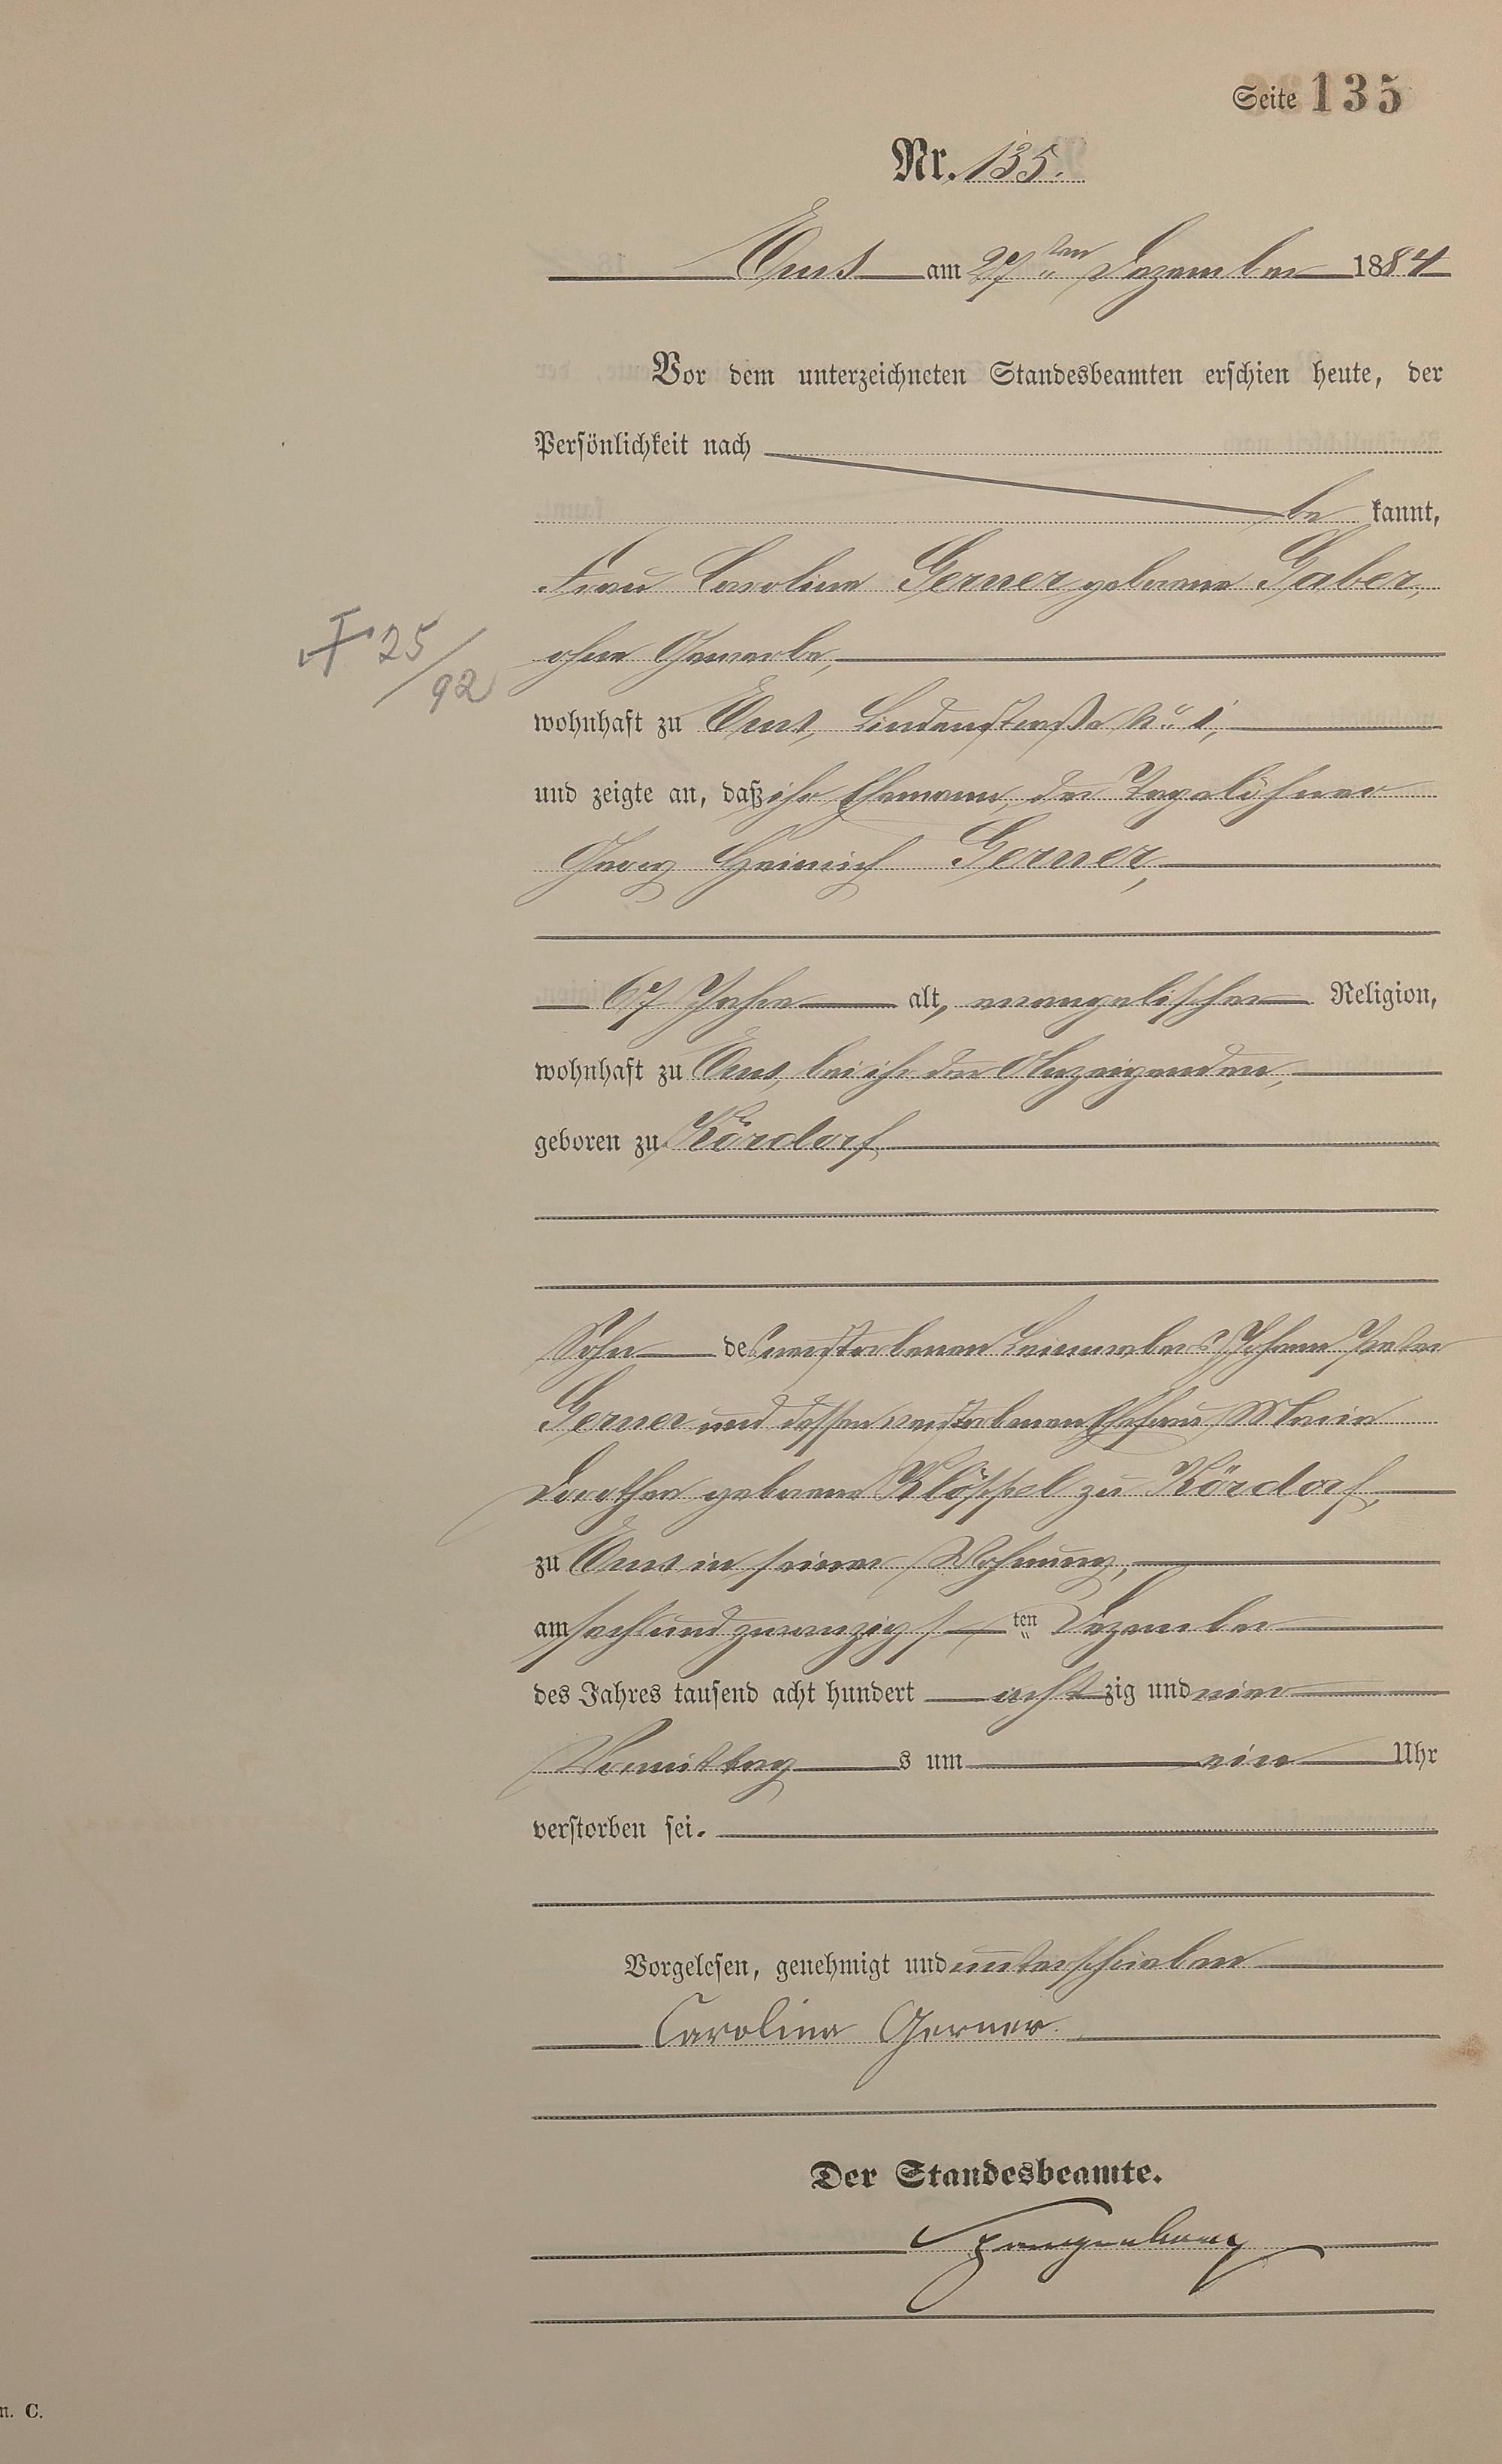 Seite 135
Nr. 135.
Ems am 27ten Dezember 1884
Vor dem unterzeichneten Standesbeamten erschien heute, der
Persönlichkeit nach
be kannt,
Frau Caroline Gerner geborene Gaber,
ohne Gewerbe,
wohnhaft zu Ems, Lindenstraße No 1,
und zeigte an, daß ihr Ehemann, der Tagelöhner
Georg Heinrich Gerner,
67 Jahre alt, evangelischer Religion,
wohnhaft zu Ems, bei ihr der Anzeigenden,
geboren zu Kördorf,
Sohn des verstorbenen Leinwebers Johann Peter
Gerner und dessen verstorbenen Ehefrau Maria
Dorothea geborene Klöppel zu Kördorf,
zu Ems in seiner Wohnung,
am sechsundzwanzigsten Dezember
des Jahres tausend acht hundert achtzig und vier
Vormittags um ein Uhr
verstorben sei.
Vorgelesen, genehmigt und unterschrieben
Carolina Gerner.
Der Standesbeamte.
Spangenberg
25/92
n. C.